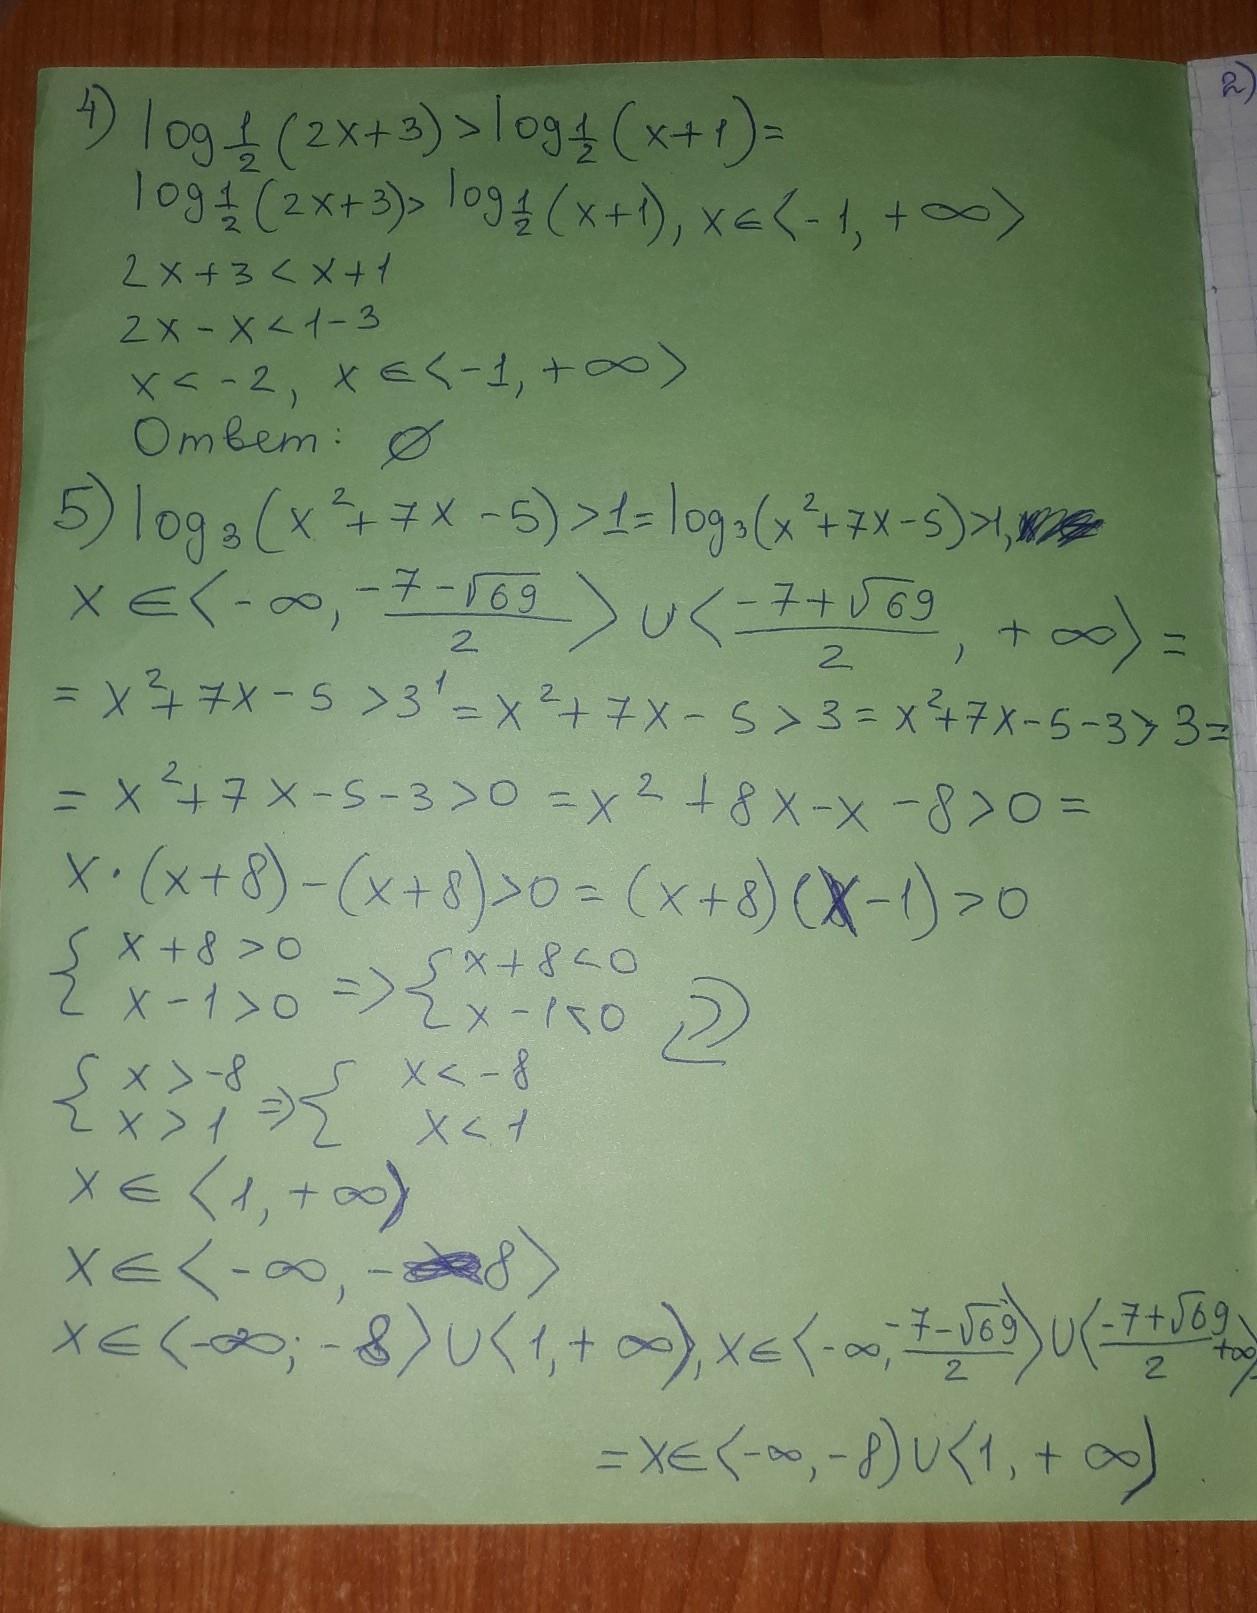 2)
4) log 1/2 (2x+3) > log 1/2 (x+1) =
log 1/2 (2x+3) > log 1/2 (x+1), x ∈ ⟨-1, +∞⟩
2x+3 < x+1
2x - x < 1-3
x < -2, x ∈ ⟨-1, +∞⟩
Ответ: ∅
5) log₃(x²+7x-5) > 1 = log₃(x²+7x-5) > 1,
x ∈ ⟨-∞, (-7-√69)/2⟩ ∪ ⟨(-7+√69)/2, +∞⟩ =
= x²+7x-5 > 3¹ = x²+7x-5 > 3 = x²+7x-5-3 > 3 =
= x²+7x-5-3 > 0 = x²+8x-x-8 > 0 =
x·(x+8)-(x+8) > 0 = (x+8)(x-1) > 0
{ x+8 > 0 ⇒ { x+8 < 0
{ x-1 > 0 { x-1 < 0
{ x > -8 ⇒ { x < -8
{ x > 1 { x < 1
x ∈ ⟨1, +∞)
x ∈ ⟨-∞, -8⟩
x ∈ ⟨-∞; -8⟩ ∪ ⟨1, +∞), x ∈ ⟨-∞, (-7-√69)/2⟩ ∪ ⟨(-7+√69)/2, +∞⟩
= x ∈ ⟨-∞, -8) ∪ ⟨1, +∞)